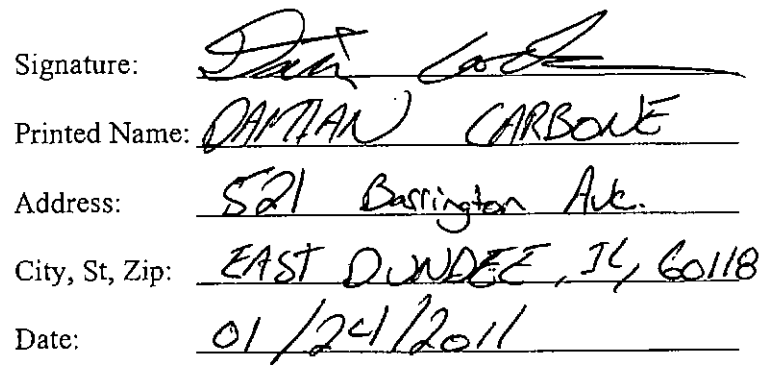 Signature:
Printed Name: DAMIAN CARBONE
Address: 521 Barrington Ave.
City, St, Zip: EAST DUNDEE, IL, 60118
Date: 01/24/2011